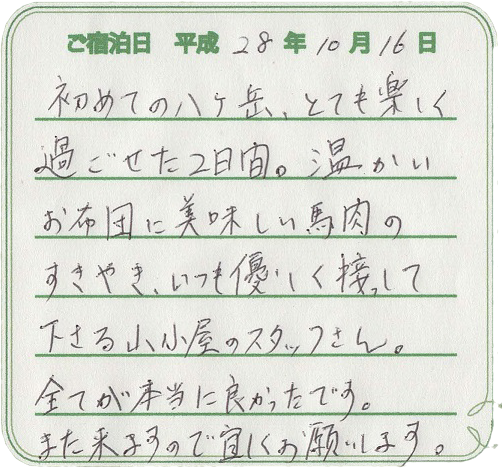 ご宿泊日 平成 28 年 10 月 16 日
初めての八ヶ岳、とても楽しく
過ごせた2日間。温かい
お布団に美味しい馬肉の
すきやき、いつも優しく接して
下さる山小屋のスタッフさん。
全てが本当に良かったです。
また来ますので宜しくお願いします。